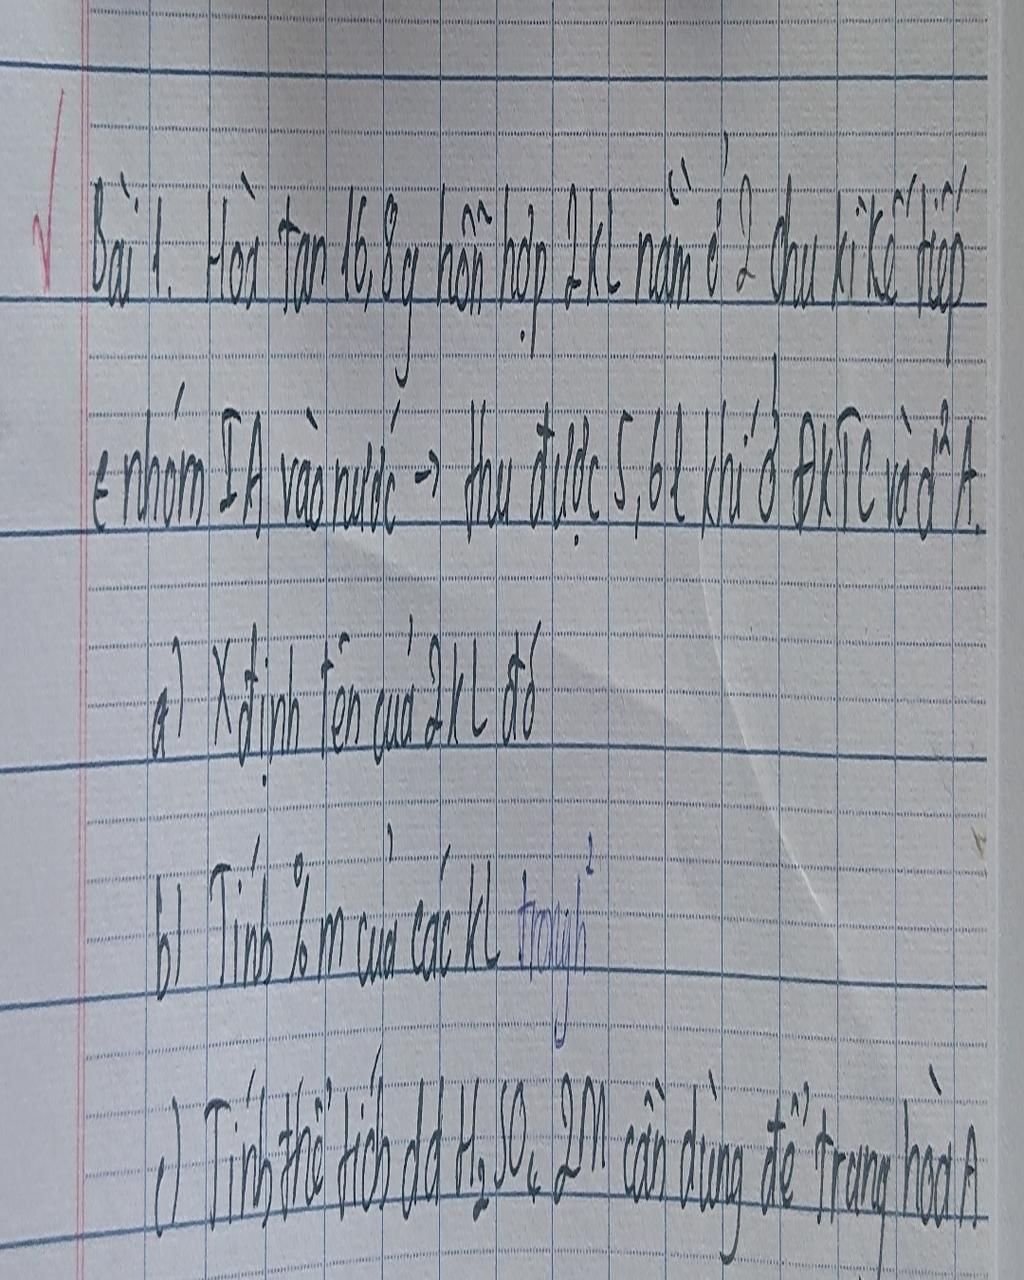 Bài 1. Hoà tan 16,8g hỗn hợp 2KL nằm ở 2 chu kì kế tiếp
∈ nhóm IA vào nước → thu được 5,6l khí ở ĐKTC và d² A.
a) Xđịnh tên của 2KL đó
b) Tính %m của các KL trong h²
c) Tính thể tích dd H₂SO₄ 2M cần dùng để trung hoà A